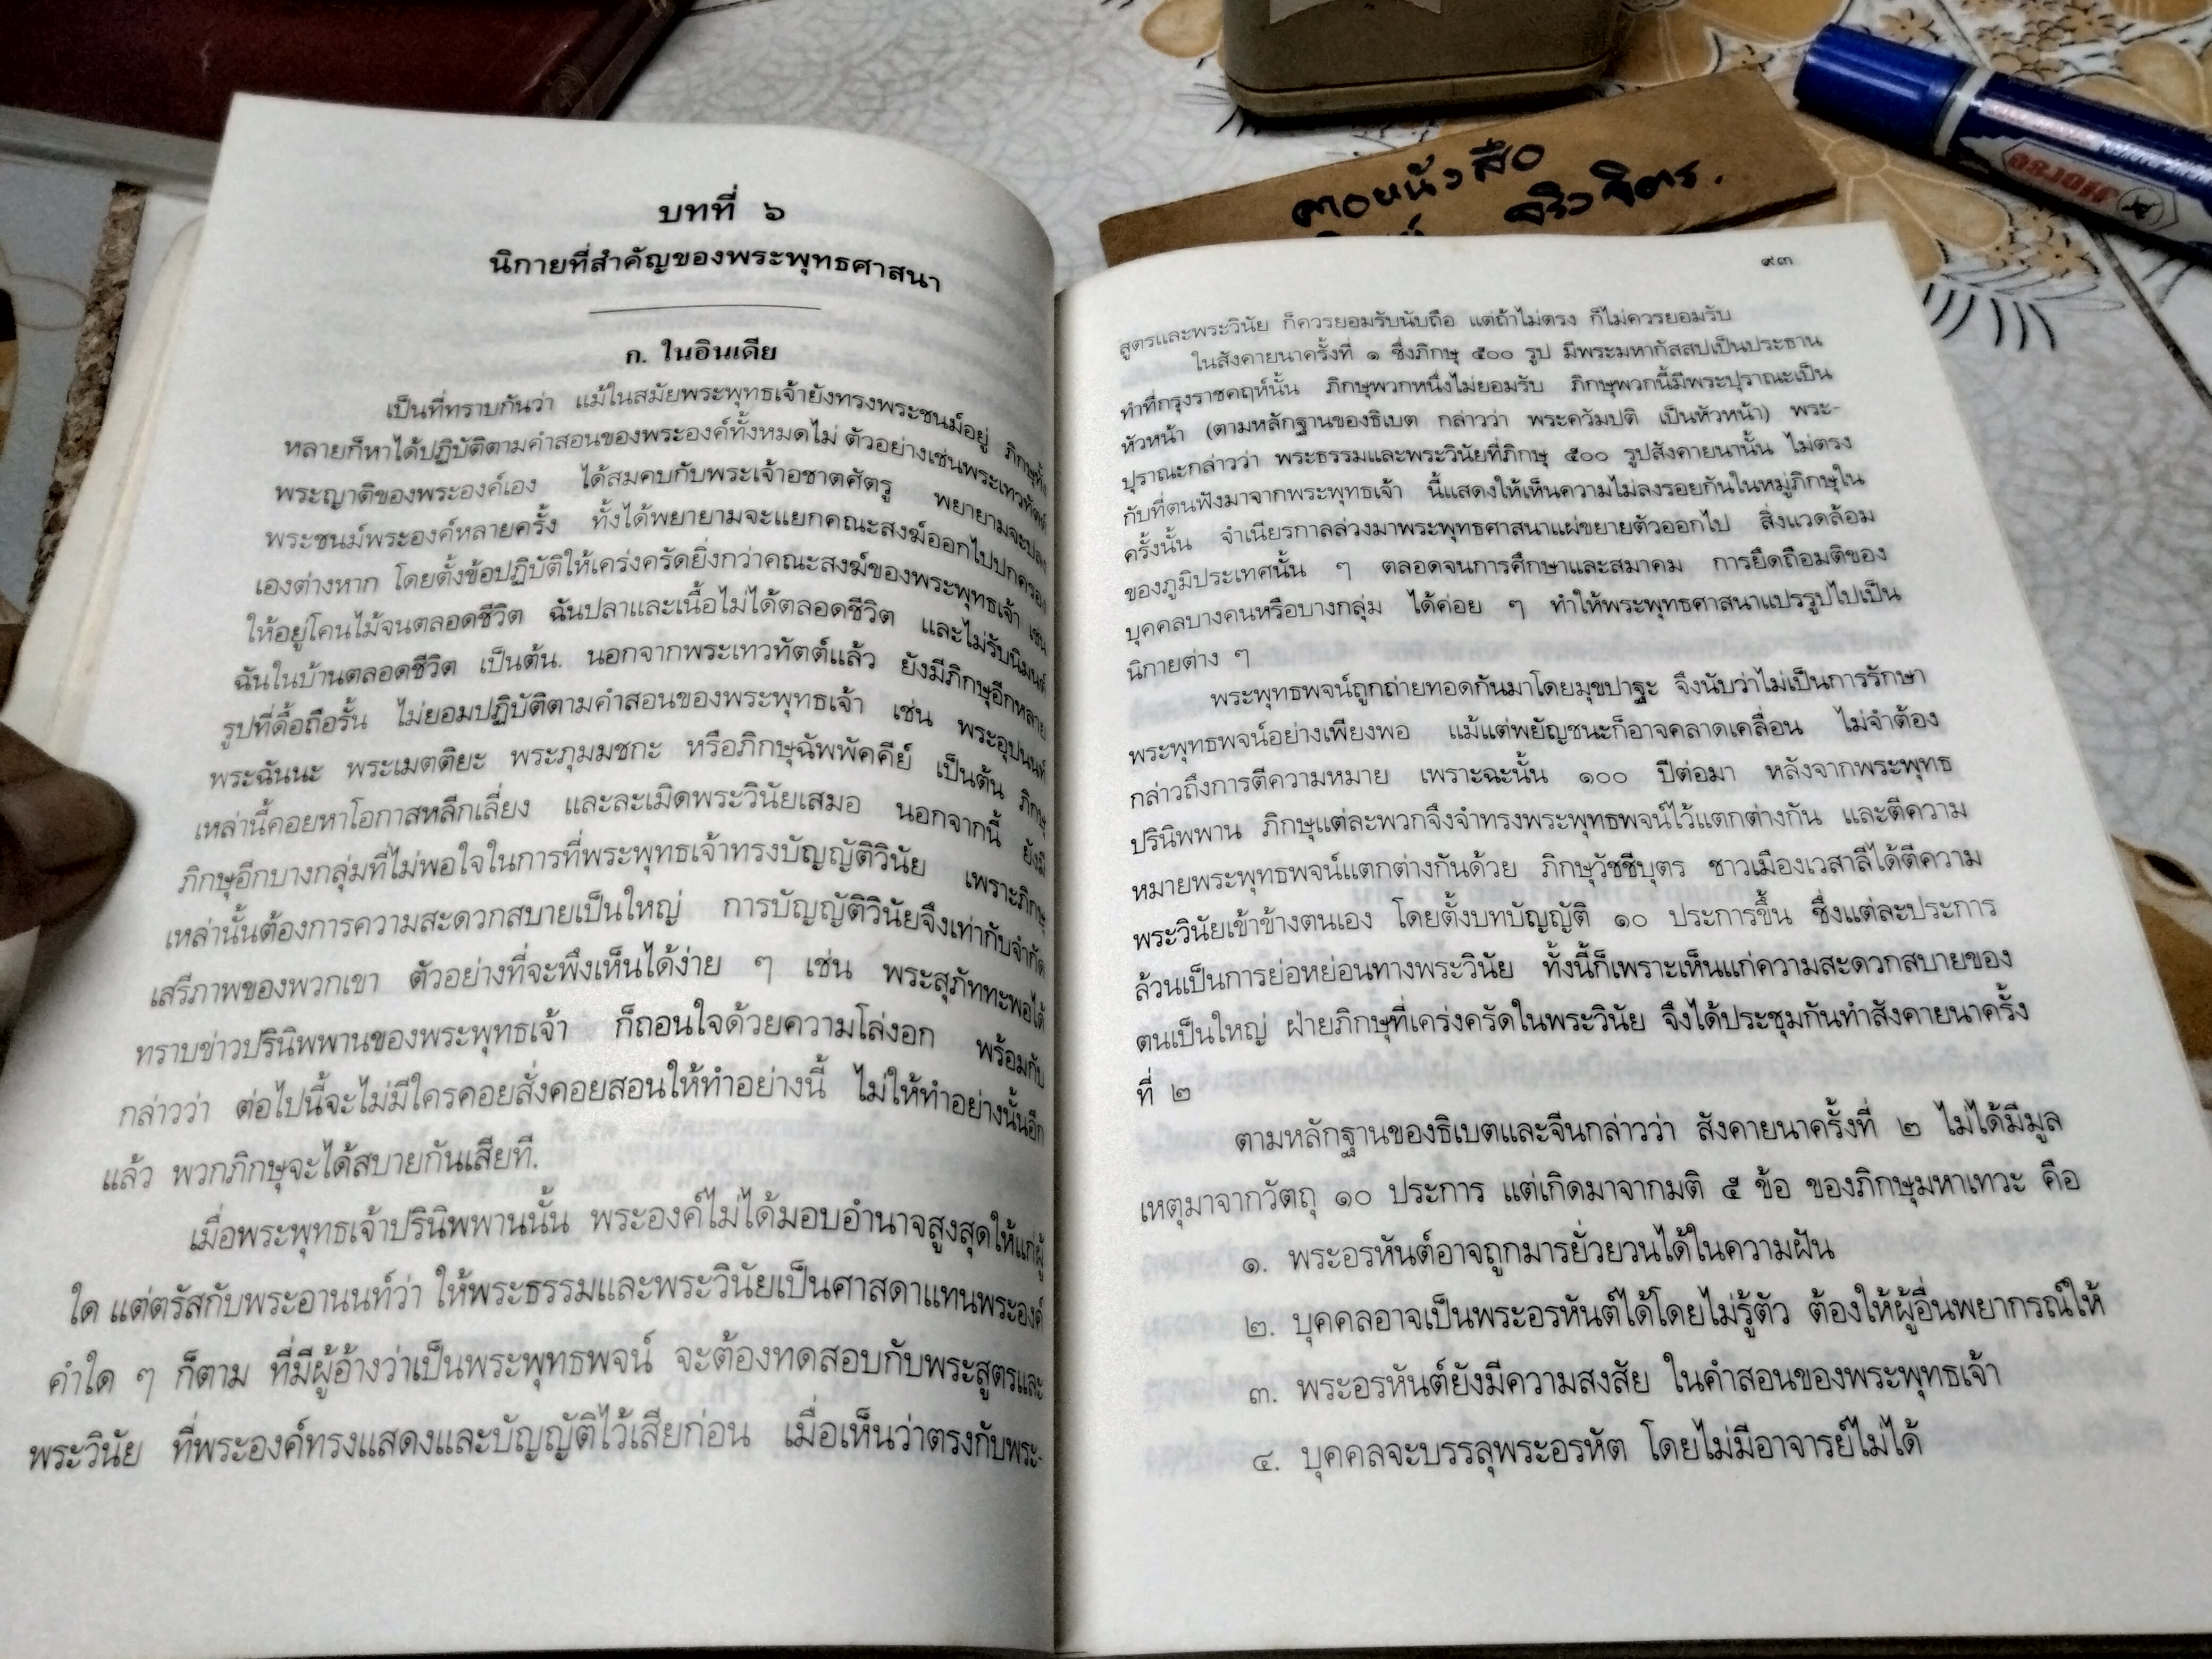 บทที่ ๖
นิกายที่สำคัญของพระพุทธศาสนา
ก. ในอินเดีย
เป็นที่ทราบกันว่า แม้ในสมัยพระพุทธเจ้ายังทรงพระชนม์อยู่ ภิกษุทั้ง
หลายก็หาได้ปฏิบัติตามคำสอนของพระองค์ทั้งหมดไม่ ตัวอย่างเช่นพระเทวทัตต์
พระญาติของพระองค์เอง ได้สมคบกับพระเจ้าอชาตศัตรู พยายามจะปลง
พระชนม์พระองค์หลายครั้ง ทั้งได้พยายามจะแยกคณะสงฆ์ออกไปปกครอง
เองต่างหาก โดยตั้งข้อปฏิบัติให้เคร่งครัดยิ่งกว่าคณะสงฆ์ของพระพุทธเจ้า เช่น
ให้อยู่โคนไม้จนตลอดชีวิต ฉันปลาและเนื้อไม่ได้ตลอดชีวิต และไม่รับนิมนต์
ฉันในบ้านตลอดชีวิต เป็นต้น. นอกจากพระเทวทัตต์แล้ว ยังมีภิกษุอีกหลาย
รูปที่ดื้อถือรั้น ไม่ยอมปฏิบัติตามคำสอนของพระพุทธเจ้า เช่น พระอุปนนท์
พระฉันนะ พระเมตติยะ พระภุมมชกะ หรือภิกษุฉัพพัคคีย์ เป็นต้น ภิกษุ
เหล่านี้คอยหาโอกาสหลีกเลี่ยง และละเมิดพระวินัยเสมอ นอกจากนี้ ยังมี
ภิกษุอีกบางกลุ่มที่ไม่พอใจในการที่พระพุทธเจ้าทรงบัญญัติวินัย เพราะภิกษุ
เหล่านั้นต้องการความสะดวกสบายเป็นใหญ่ การบัญญัติวินัยจึงเท่ากับจำกัด
เสรีภาพของพวกเขา ตัวอย่างที่จะพึงเห็นได้ง่าย ๆ เช่น พระสุภัททะพอได้
ทราบข่าวปรินิพพานของพระพุทธเจ้า ก็ถอนใจด้วยความโล่งอก พร้อมกับ
กล่าวว่า ต่อไปนี้จะไม่มีใครคอยสั่งคอยสอนให้ทำอย่างนี้ ไม่ให้ทำอย่างนั้นอีก
แล้ว พวกภิกษุจะได้สบายกันเสียที.
เมื่อพระพุทธเจ้าปรินิพพานนั้น พระองค์ไม่ได้มอบอำนาจสูงสุดให้แก่ผู้
ใด แต่ตรัสกับพระอานนท์ว่า ให้พระธรรมและพระวินัยเป็นศาสดาแทนพระองค์
คำใด ๆ ก็ตาม ที่มีผู้อ้างว่าเป็นพระพุทธพจน์ จะต้องทดสอบกับพระสูตรและ
พระวินัย ที่พระองค์ทรงแสดงและบัญญัติไว้เสียก่อน เมื่อเห็นว่าตรงกับพระ-
๙๓
สูตรและพระวินัย ก็ควรยอมรับนับถือ แต่ถ้าไม่ตรง ก็ไม่ควรยอมรับ
ในสังคายนาครั้งที่ ๑ ซึ่งภิกษุ ๕๐๐ รูป มีพระมหากัสสปเป็นประธาน
ทำที่กรุงราชคฤห์นั้น ภิกษุพวกหนึ่งไม่ยอมรับ ภิกษุพวกนี้มีพระปุราณะเป็น
หัวหน้า (ตามหลักฐานของธิเบต กล่าวว่า พระควัมปติ เป็นหัวหน้า) พระ-
ปุราณะกล่าวว่า พระธรรมและพระวินัยที่ภิกษุ ๕๐๐ รูปสังคายนานั้น ไม่ตรง
กับที่ตนฟังมาจากพระพุทธเจ้า นี้แสดงให้เห็นความไม่ลงรอยกันในหมู่ภิกษุใน
ครั้งนั้น จำเนียรกาลล่วงมาพระพุทธศาสนาแผ่ขยายตัวออกไป สิ่งแวดล้อม
ของภูมิประเทศนั้น ๆ ตลอดจนการศึกษาและสมาคม การยึดถือมติของ
บุคคลบางคนหรือบางกลุ่ม ได้ค่อย ๆ ทำให้พระพุทธศาสนาแปรรูปไปเป็น
นิกายต่าง ๆ
พระพุทธพจน์ถูกถ่ายทอดกันมาโดยมุขปาฐะ จึงนับว่าไม่เป็นการรักษา
พระพุทธพจน์อย่างเพียงพอ แม้แต่พยัญชนะก็อาจคลาดเคลื่อน ไม่จำต้อง
กล่าวถึงการตีความหมาย เพราะฉะนั้น ๑๐๐ ปีต่อมา หลังจากพระพุทธ
ปรินิพพาน ภิกษุแต่ละพวกจึงจำทรงพระพุทธพจน์ไว้แตกต่างกัน และตีความ
หมายพระพุทธพจน์แตกต่างกันด้วย ภิกษุวัชชีบุตร ชาวเมืองเวสาลีได้ตีความ
พระวินัยเข้าข้างตนเอง โดยตั้งบทบัญญัติ ๑๐ ประการขึ้น ซึ่งแต่ละประการ
ล้วนเป็นการย่อหย่อนทางพระวินัย ทั้งนี้ก็เพราะเห็นแก่ความสะดวกสบายของ
ตนเป็นใหญ่ ฝ่ายภิกษุที่เคร่งครัดในพระวินัย จึงได้ประชุมกันทำสังคายนาครั้ง
ที่ ๒
ตามหลักฐานของธิเบตและจีนกล่าวว่า สังคายนาครั้งที่ ๒ ไม่ได้มีมูล
เหตุมาจากวัตถุ ๑๐ ประการ แต่เกิดมาจากมติ ๕ ข้อ ของภิกษุมหาเทวะ คือ
๑. พระอรหันต์อาจถูกมารยั่วยวนได้ในความฝัน
๒. บุคคลอาจเป็นพระอรหันต์ได้โดยไม่รู้ตัว ต้องให้ผู้อื่นพยากรณ์ให้
๓. พระอรหันต์ยังมีความสงสัย ในคำสอนของพระพุทธเจ้า
๔. บุคคลจะบรรลุพระอรหัต โดยไม่มีอาจารย์ไม่ได้
Horse